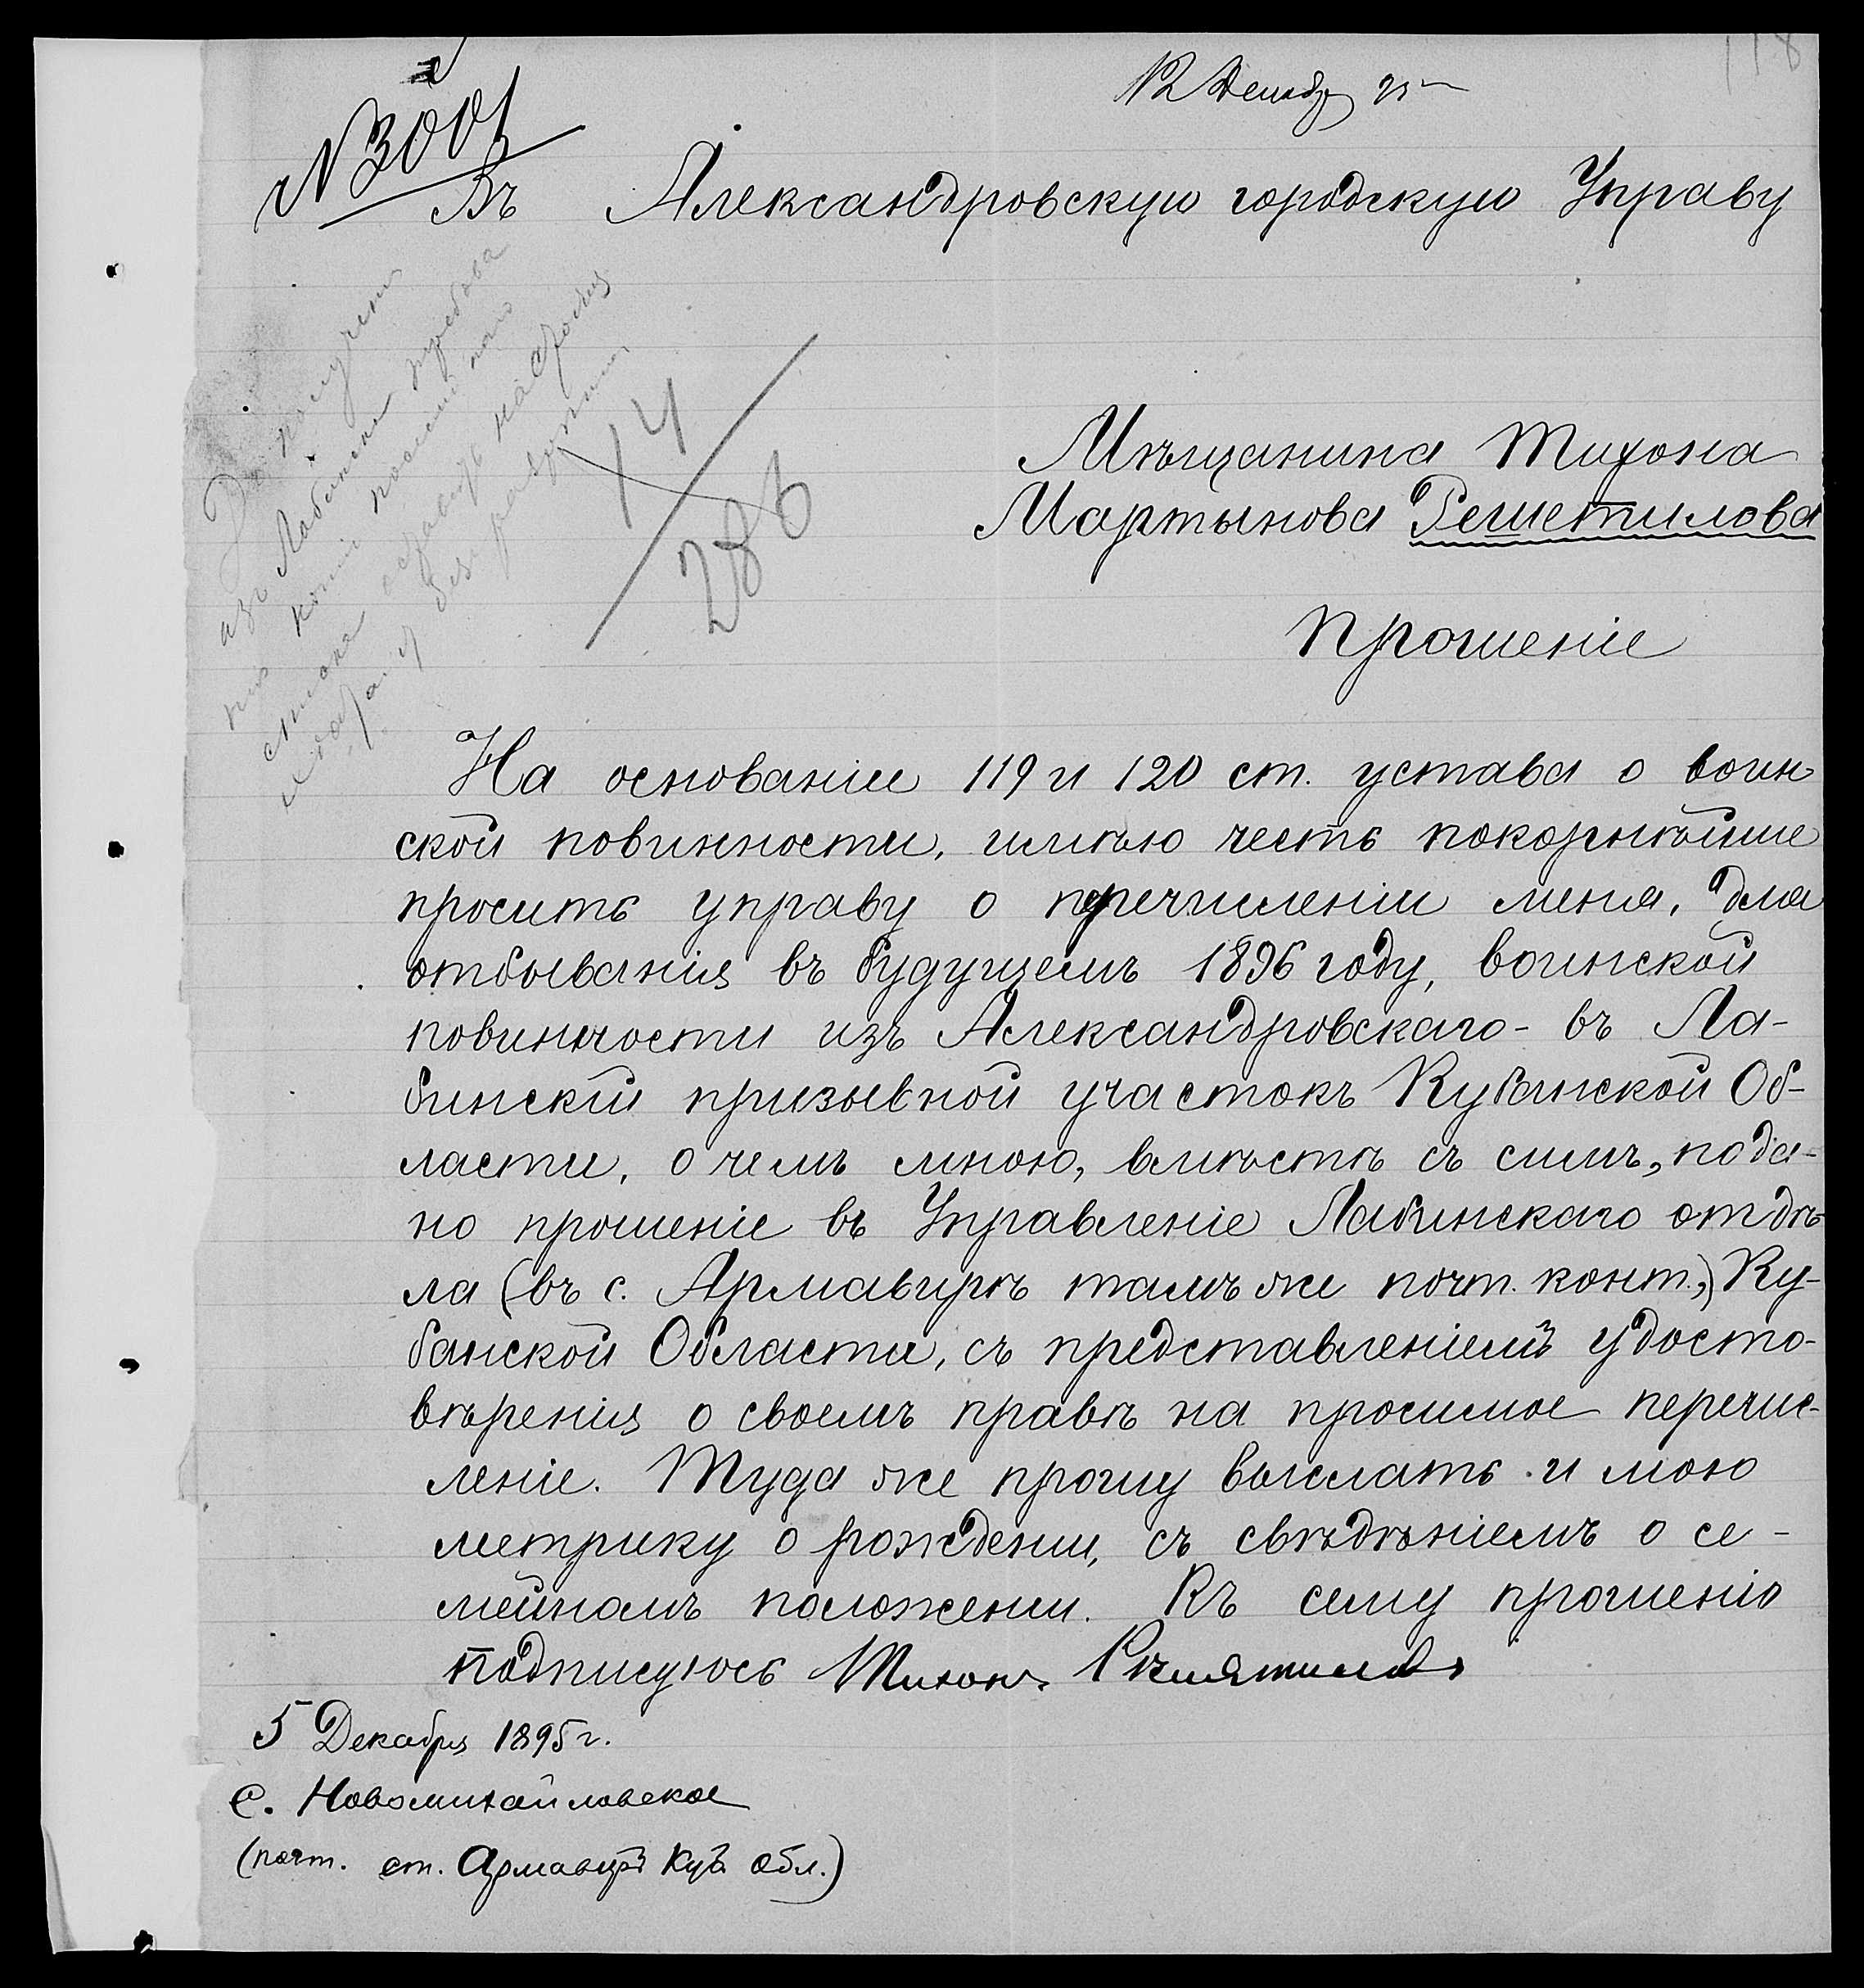 118
12 Декабр 95
№ 3001
Въ Александровскую городскую Управу
До получения
изъ Лабинска требова
нія копіи посемейнаго
списка оставить
безъ
14/286
Мѣщанина Тихона
Мартынова Решетилова
Прошеніе
На основаніи 119 и 120 ст. устава о воин
ской повинности, имѣю честь покорнѣйше
просить управу о перечисленіи меня, для
отбыванія въ будущемъ 1896 году, воинской
повинности изъ Александровскаго - въ Ла-
бинскій призывной участокъ Кубанской Об-
ласти, о чемъ мною, вмѣстѣ съ симъ, пода-
но прошеніе въ Управленіе Лабинскаго отдѣ-
ла (въ с. Армавирѣ тамъ же почт. конт.,) Ку-
банской Области, съ представленіемъ удосто-
вѣренія о своемъ правѣ на просимое перечис-
леніе. Туда же прошу выслать и мою
метрику о рожденіи, съ свѣдѣніемъ о се-
мейномъ положеніи. Къ сему прошенію
подписуюсь Тихон Решятилов
5 Декабря 1895 г.
С. Новомихайловское
(почт. ст. Армавиръ Куб. обл.)